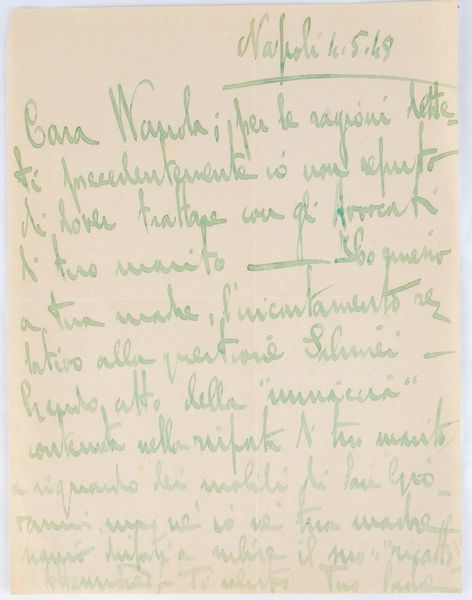 Napoli 4.5.49
Cara Wanda; per le ragioni dette-
ti precedentemente io non reputo
di dover trattare con gli avvocati
di tuo marito — Ho
a tua madre, l'incartamento re
lativo alla questione
Prendo atto della "minaccia"
contenuta nella risposta di tuo marito
a riguardo dei mobili di San Gio
vanni, ma nè io nè tua madre
siamo disposti a subire il suo "ricatto"
Ti saluto Tuo